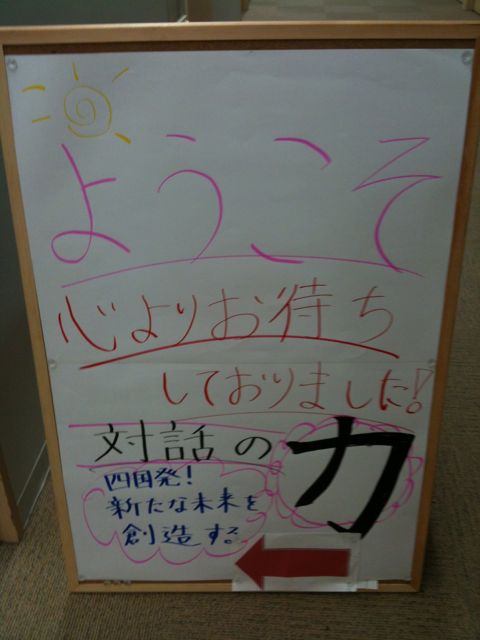 ようこそ
心よりお待ち
しておりました!
対話の力
四国発!
新たな未来を
創造する。